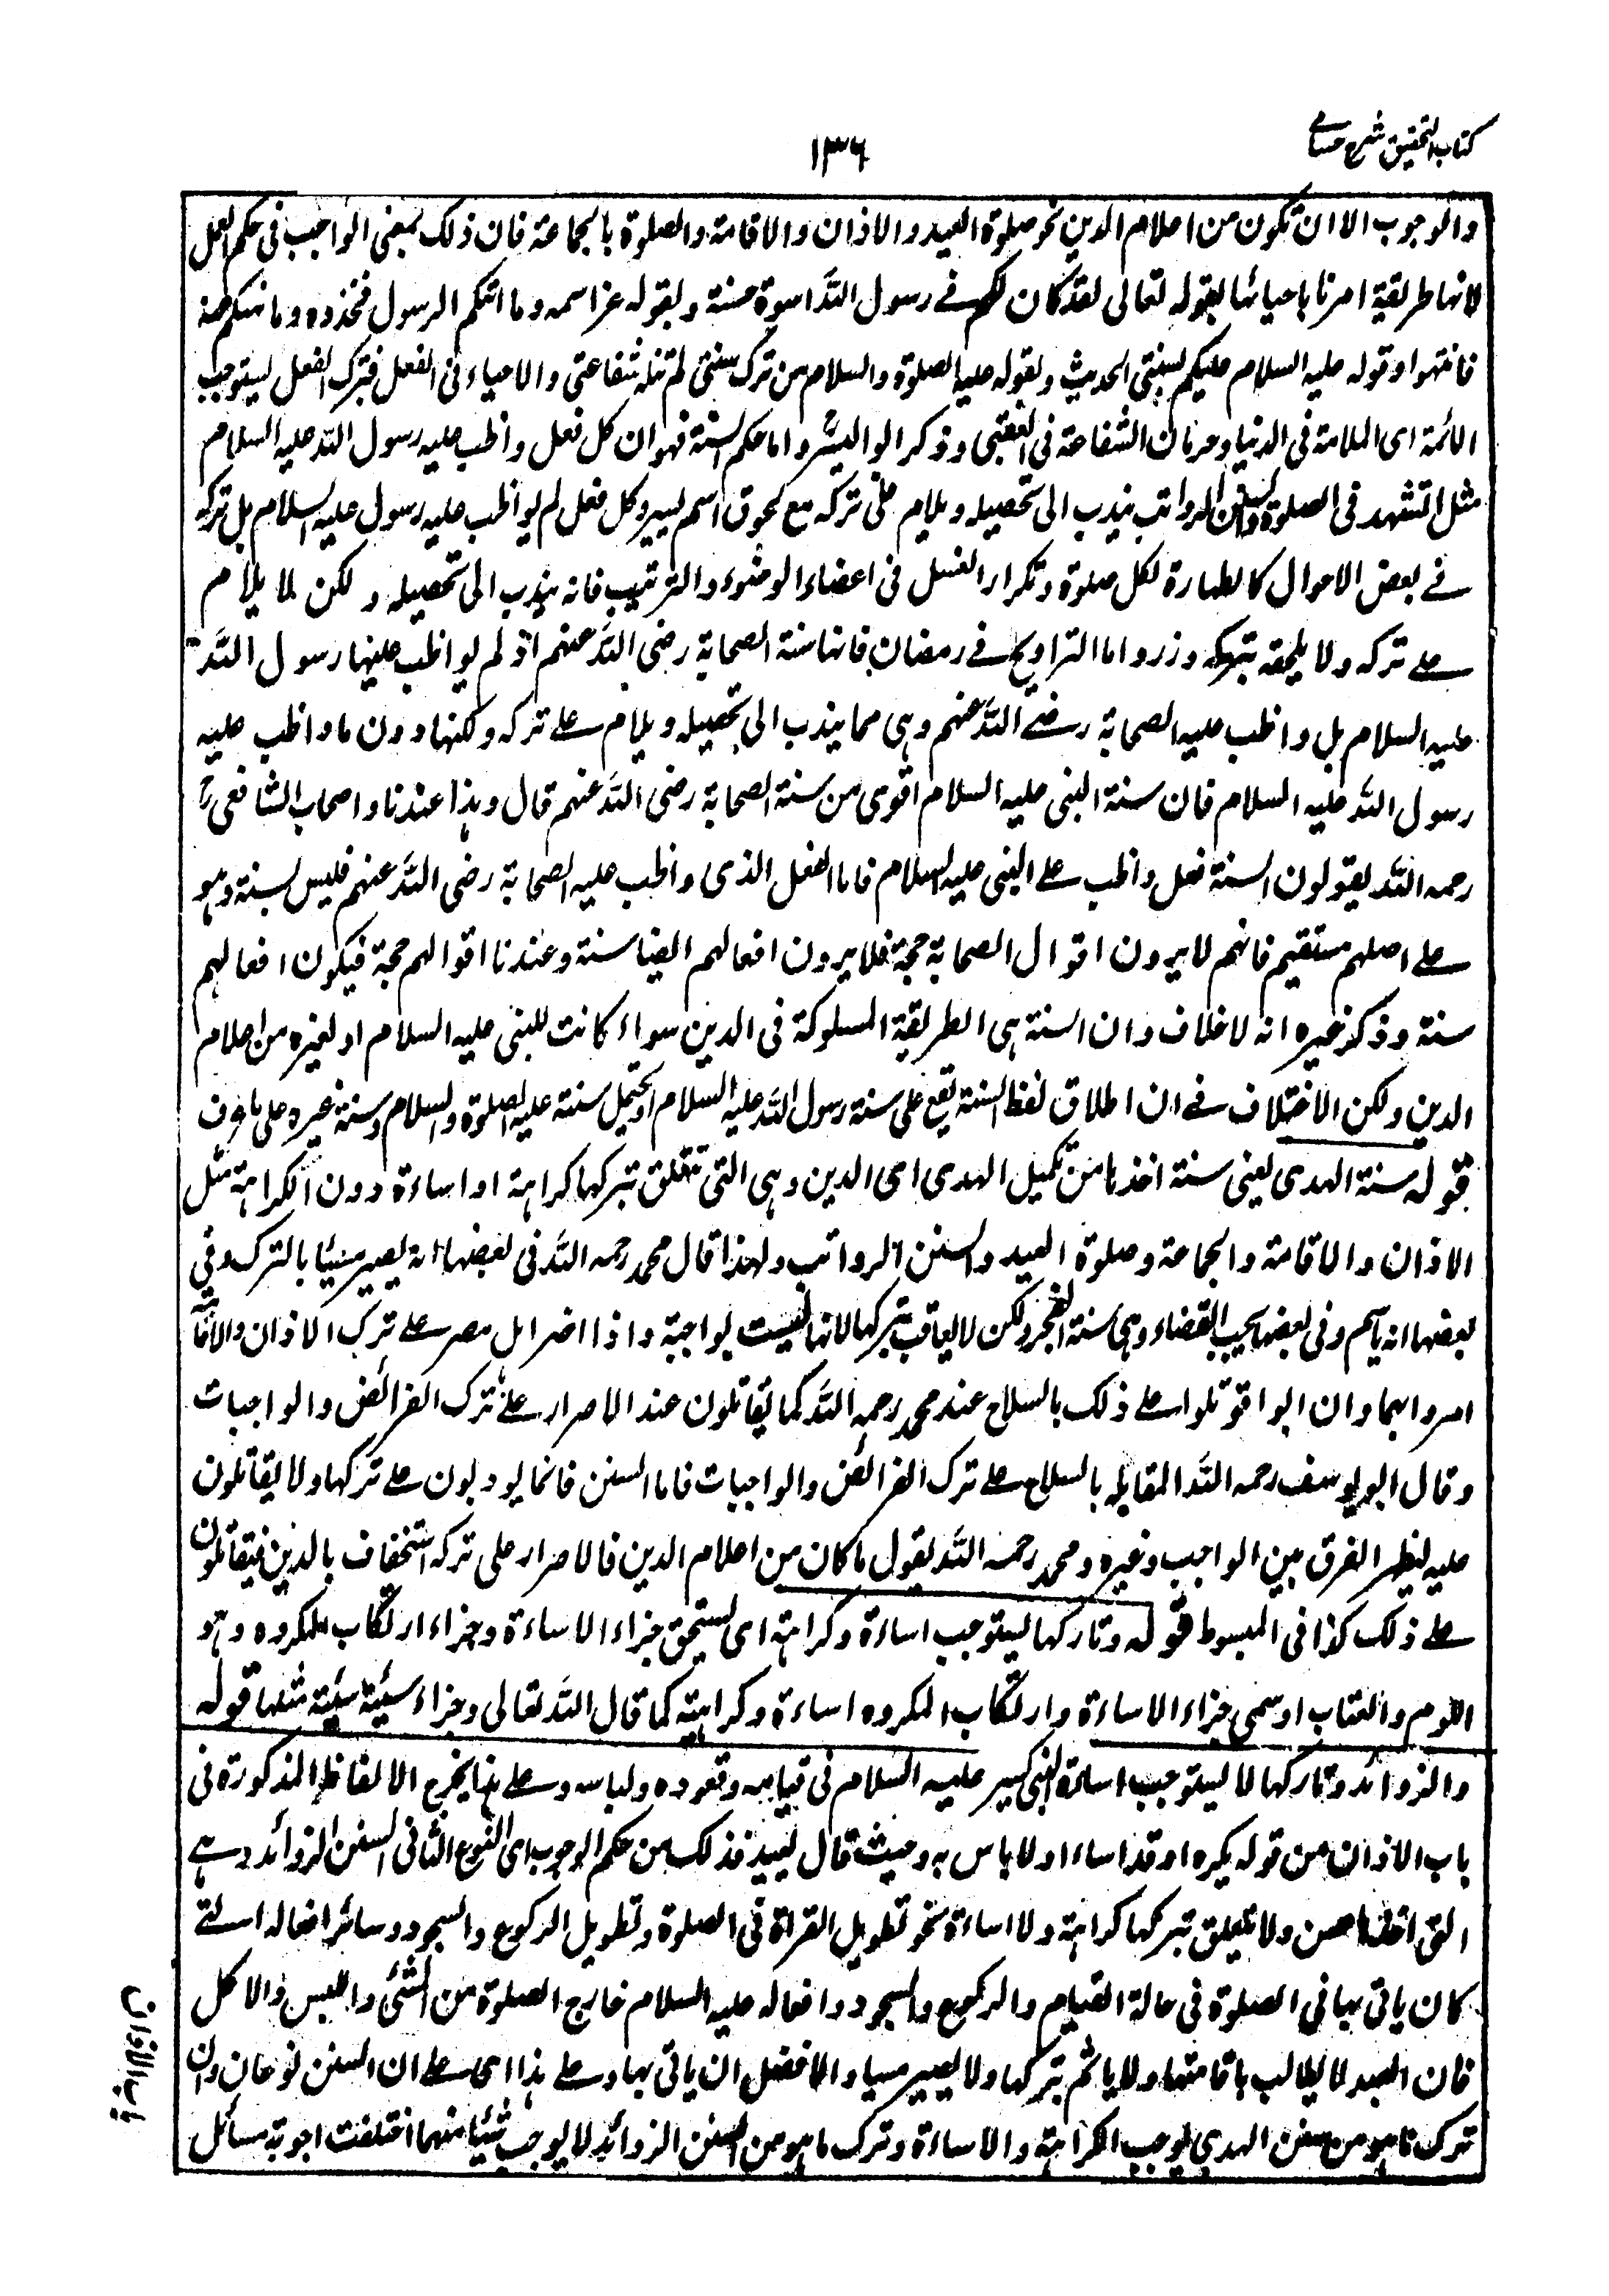 كتاب التحقيق شرح حسامي
١٣٦
والوجوب الا ان تكون من اعلام الدين نحو صلوة العيد والاذان والاقامة والصلوة بالجماعة فان ذلك بمعنى الواجب فى حكم العمل
لانها طريقة امرنا باحيائها بقوله تعالى لقد كان لكم فے رسول اللّٰه اسوة حسنة وبقوله عز اسمه وما اتىكم الرسول فخذوه وما نهىكم عنه
فانتهوا وقوله عليه السلام عليكم بسنتى الحديث وبقوله عليه الصلوة والسلام من ترك سنتى لم تنله شفاعتى والاحياء فى الفعل فبترك الفعل يستوجب
الائمة اى الملامة فى الدنيا وحرمان الشفاعة فى العقبى وذكر ابو اليسر واما حكم السنة فهو ان كل فعل واظب عليه رسول اللّٰه عليه السلام
مثل التشهد فى الصلوة والسنن الرواتب يندب الى تحصيله ويلام على تركه مع لحوق اثم يسير وكل فعل لم يواظب عليه رسول عليه السلام بل تركه
فے بعض الاحوال كالطهارة لكل صلوة وتكرار الغسل فى اعضاء الوضوء والترتيب فانه يندب الى تحصيله ولكن لا يلام
علے تركه ولا يلحقه بتركه وزر واما التراويح فے رمضان فانها سنة الصحابة رضى اللّٰه عنهم اذ لم يواظب عليها رسول اللّٰه
عليه السلام بل واظب عليه الصحابة رضے اللّٰه عنهم وهى مما يندب الى تحصيله ويلام علے تركه ولكنها دون ما واظب عليه
رسول اللّٰه عليه السلام فان سنة النبى عليه السلام اقوى من سنة الصحابة رضى اللّٰه عنهم قال وهذا عندنا واصحاب الشافعى
رحمه اللّٰه يقولون السنة فعل واظب علے النبى عليه السلام فاما الفعل الذى واظب عليه الصحابة رضى اللّٰه عنهم فليس بسنة وهو
علے اصلهم مستقيم فانهم لا يرون اقوال الصحابة حجة فلا يرون افعالهم ايضا سنة وعندنا اقوالهم حجة فيكون افعالهم
سنة وذكر غيره انه لا خلاف وان السنة هى الطريقة المسلوكة فى الدين سواء كانت للنبى عليه السلام او لغيره من اعلام
الدين ولكن الاختلاف فے ان اطلاق لفظ السنة تقع على سنة رسول اللّٰه عليه السلام او يحتمل سنته عليه الصلوة والسلام وسنة غيره على ما عرف
قوله سنة الهدى يعنى سنة اخذها من تكميل الهدى اى الدين وهى التى تتعلق بتركها كراهة او اساءة دون الكراهة مثل
الاذان والاقامة والجماعة وصلوة العيد والسنن الرواتب ولهذا قال محمد رحمه اللّٰه فى بعضها انه يصير مسيئا بالترك وفى
بعضها انه يأثم وفى بعضها يجب القضاء وهى سنة الفجر ولكن لا يعاقب بتركها لانها ليست بواجبة واذا اصر اهل مصر علے ترك الاذان والاقامة
امروا بهما وان ابوا قوتلوا علے ذلك بالسلاح عند محمد رحمه اللّٰه كما يقاتلون عند الاصرار علے ترك الفرائض والواجبات
وقال ابو يوسف رحمه اللّٰه المقاتله بالسلاح علے ترك الفرائض والواجبات فاما السنن فانما يؤدبون علے تركها ولا يقاتلون
عليه ليظهر الفرق بين الواجب وغيره ومحمد رحمه اللّٰه يقول ما كان من اعلام الدين فالاصرار على تركه استخفاف بالدين فيقاتلون
علے ذلك كذا فى المبسوط قوله وتاركها يستوجب اساءة وكراهة اى يستحق جزاء الاساءة وجزاء ارتكاب المكروه وهو
اللوم والعتاب او سمى جزاء الاساءة وارتكاب المكروه اساءة وكراهية كما قال اللّٰه تعالى وجزاء سيئة سيئة مثلها قوله
والزوائد وتاركها لا يستوجب اساءة كسير النبى عليه السلام فى قيامه وقعوده ولباسه وعلے هذا يخرج الالفاظ المذكورة فى
باب الاذان من قوله يكره او قد اساء او لا باس به وحيث قال يعيد فذلك من حكم الوجوب اى النوع الثانى السنن الزوائد وہے
التى اخذها حسن ولا يتعلق بتركها كراهة ولا اساءة نحو تطويل القراة فى الصلوة وتطويل الركوع والسجود وسائر افعاله التے
كان ياتى بها فى الصلوة فى حالة القيام والركوع والسجود وافعاله عليه السلام خارج الصلوة من المشى واللبس والاكل
فان العبد لا يطالب باقامتها ولا ياثم بتركها ولا يصير مسيا والافضل ان ياتى بها وعلے هذا اى علے ان السنن نوعان وان
ترك ما هو من سنن الهدى يوجب الكراهة والاساءة وترك ما هو من السنن الزوائد لا يوجب شيئا منهما اختلفت اجوبة مسائل
باب الاذان